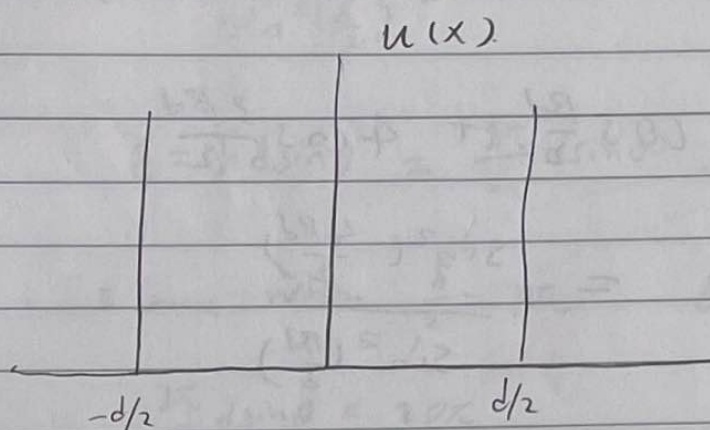 u(x).
-d/2 d/2